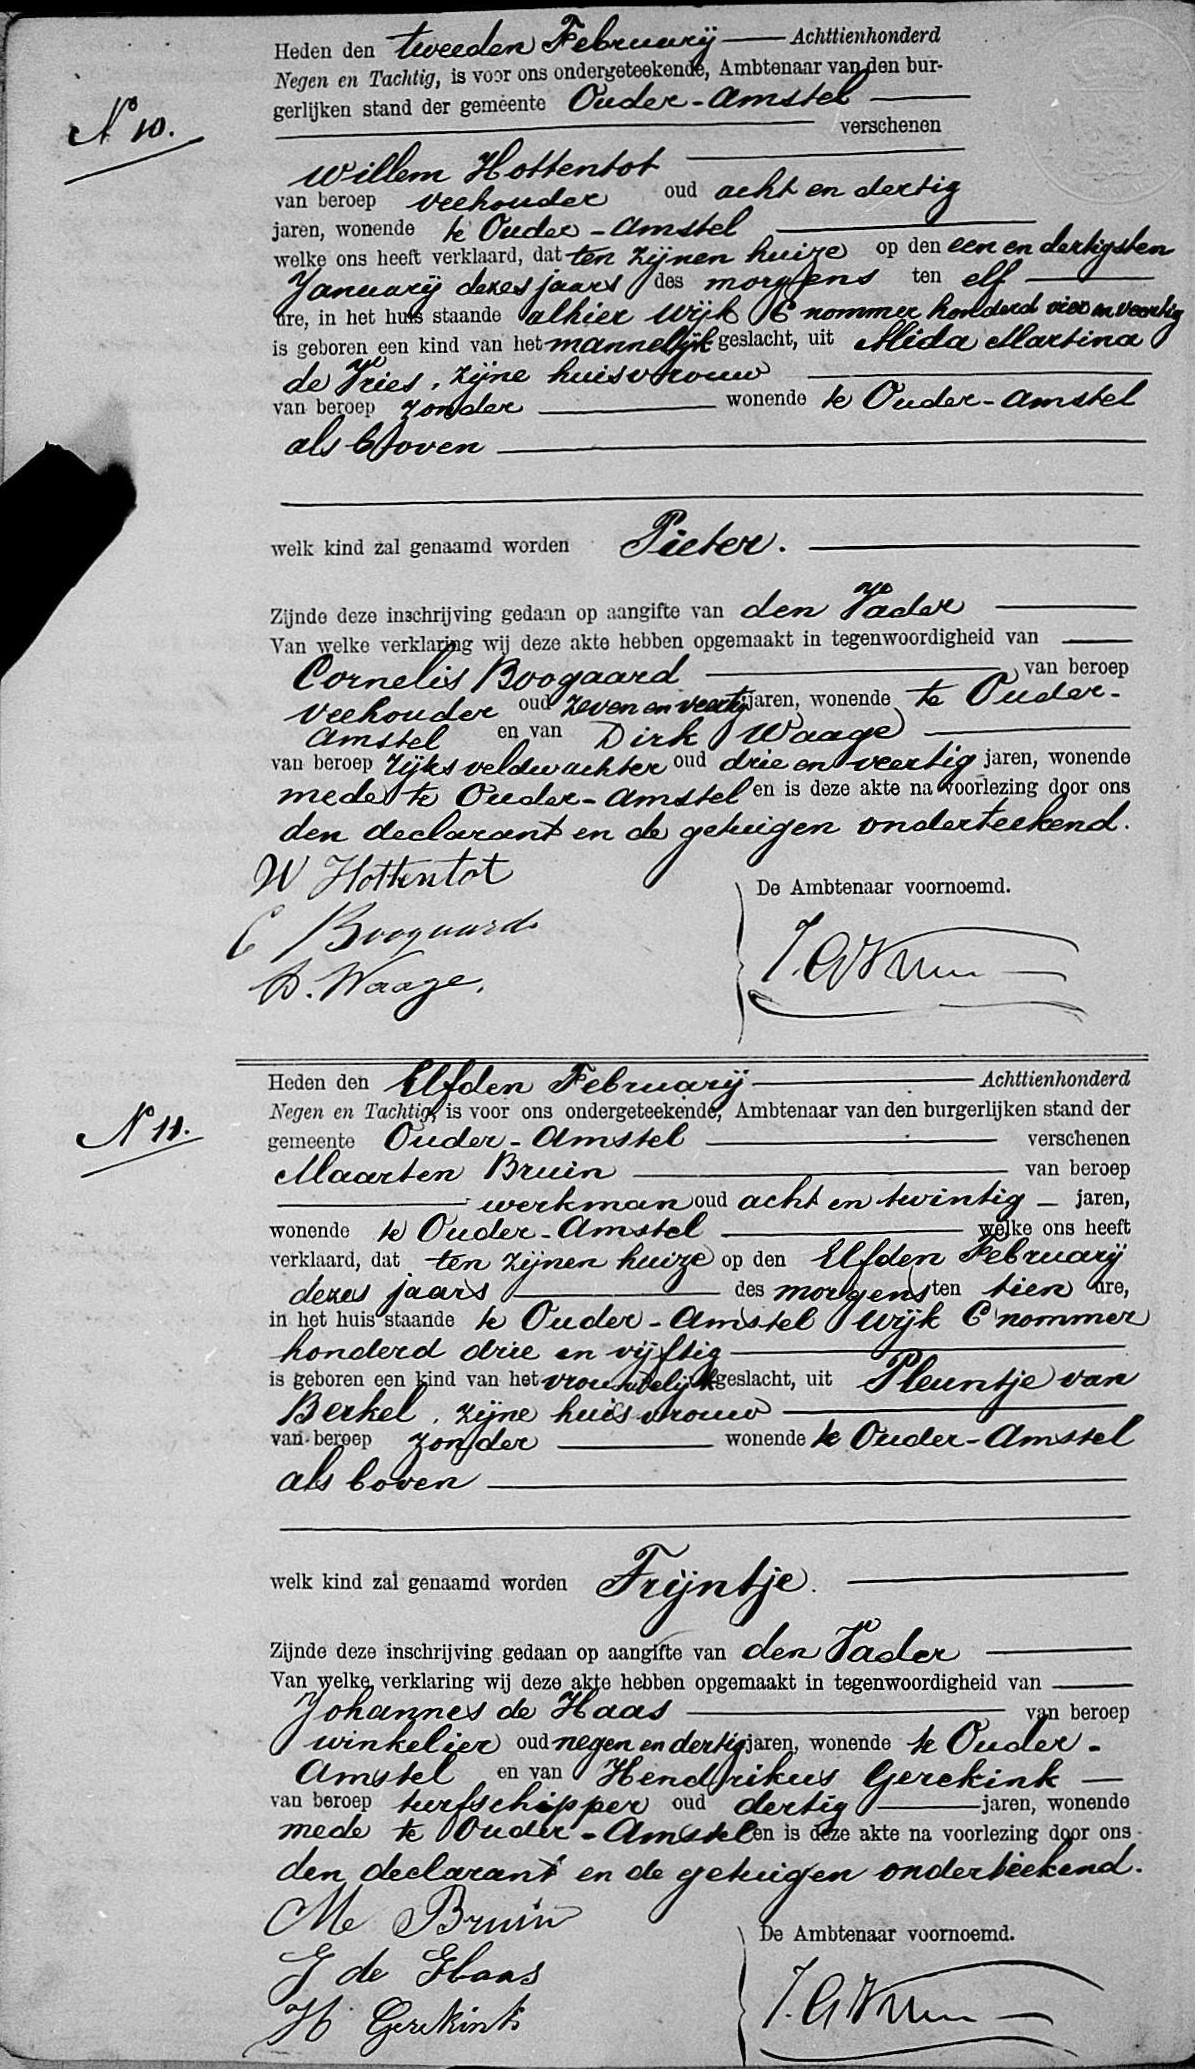 Heden den tweeden February Achttienhonderd
Negen en Tachtig, is voor ons ondergeteekende, Ambtenaar van den bur-
gerlijken stand der gemeente Ouder-Amstel
verschenen
No 10.
Willem Hottentot
van beroep veehouder oud acht en dertig
jaren, wonende te Ouder-Amstel
welke ons heeft verklaard, dat ten zijnen huize op den een en dertigsten
January dezes jaars des morgens ten elf
ure, in het huis staande alhier wijk C nommer honderd vier en veertig
is geboren een kind van het mannelijk geslacht, uit Alida Martina
de Vries, zijne huisvrouw
van beroep zonder wonende te Ouder-Amstel
als boven
welk kind zal genaamd worden Pieter.
Zijnde deze inschrijving gedaan op aangifte van den Vader
Van welke verklaring wij deze akte hebben opgemaakt in tegenwoordigheid van
Cornelis Boogaard van beroep
veehouder oud zeven en veertig jaren, wonende te Ouder-
Amstel en van Dirk Waage
van beroep rijksveldwachter oud drie en veertig jaren, wonende
mede te Ouder-Amstel en is deze akte na voorlezing door ons
den declarant en de getuigen onderteekend.
W Hottentot
De Ambtenaar voornoemd.
C Boogaard
D. Waage.
Heden den Elfden February Achttienhonderd
Negen en Tachtig, is voor ons ondergeteekende, Ambtenaar van den burgerlijken stand der
No 11.
gemeente Ouder-Amstel verschenen
Maarten Bruin van beroep
werkman oud acht en twintig jaren,
wonende te Ouder-Amstel welke ons heeft
verklaard, dat ten zijnen huize op den Elfden February
dezes jaars des morgens ten tien ure,
in het huis staande te Ouder-Amstel wijk C nommer
honderd drie en vijftig
is geboren een kind van het vrouwelijk geslacht, uit Pleuntje van
Berkel, zijne huisvrouw
van beroep zonder wonende te Ouder-Amstel
als boven
welk kind zal genaamd worden Trijntje.
Zijnde deze inschrijving gedaan op aangifte van den Vader
Van welke verklaring wij deze akte hebben opgemaakt in tegenwoordigheid van
Johannes de Haas van beroep
winkelier oud negen en dertig jaren, wonende te Ouder-
Amstel en van Hendrikus Gerekink
van beroep turfschipper oud dertig jaren, wonende
mede te Ouder-Amstel en is deze akte na voorlezing door ons
den declarant en de getuigen onderteekend.
M Bruin
De Ambtenaar voornoemd.
J de Haas
H Gerekink